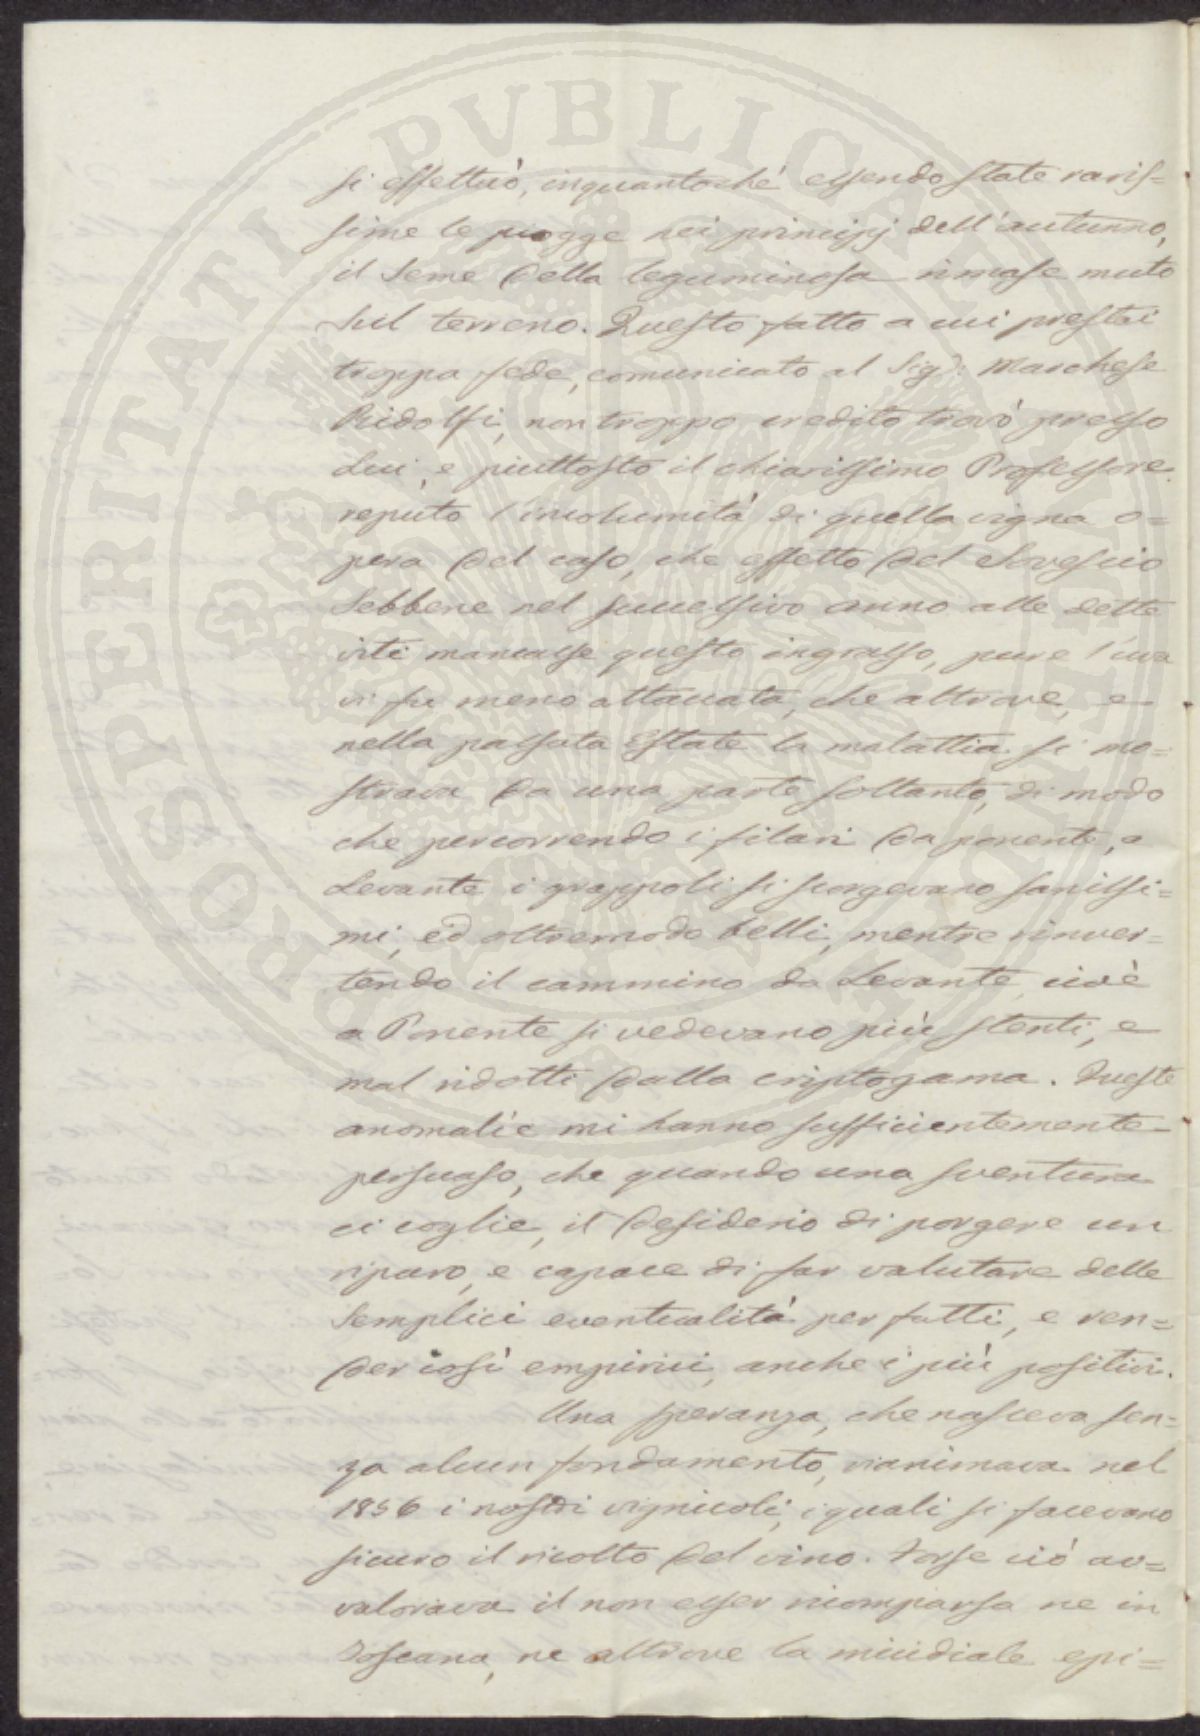 si effettuò, inquantoché essendo state raris=
sime le piogge nei principj dell'autunno,
il seme della leguminosa rimase muto
sul terreno. Questo fatto a cui prestai
troppa fede, comunicato al Sigr. Marchese
Ridolfi, non troppo credito trovò presso
Lui, e piuttosto il chiarissimo Professore
reputò l'incolumità di quella vigna o=
pera del caso, che effetto del Sovescio
Sebbene nel successivo anno alle dette
viti mancasse questo ingrasso, pure l'uva
vi fu meno attaccata, che altrove, e
nella passata Estate la malattia si mo=
strava da una parte soltanto, di modo
che percorrendo i filari da ponente, a
Levante i grappoli si scorgevano sanissi=
mi, ed oltremodo belli, mentre rinver=
tendo il cammino da Levante, cioè
a Ponente si vedevano più stenti, e
mal ridotti dalla criptogama. Queste
anomalie mi hanno sufficientemente
persuaso, che quando una sventura
ci coglie, il desiderio di porgere un
riparo, e capace di far valutare delle
Semplici eventualità per fatti, e ren=
der così empirici, anche i più positivi.
Una speranza, che nasceva sen=
za alcun fondamento, rianimava nel
1856 i nostri vignicoli, i quali si facevano
sicuro il ricolto del vino. Forse ciò av=
valorava il non esser ricomparsa ne in
Toscana, ne altrove la micidiale epi=
PROSPERITATI PVBLICAE